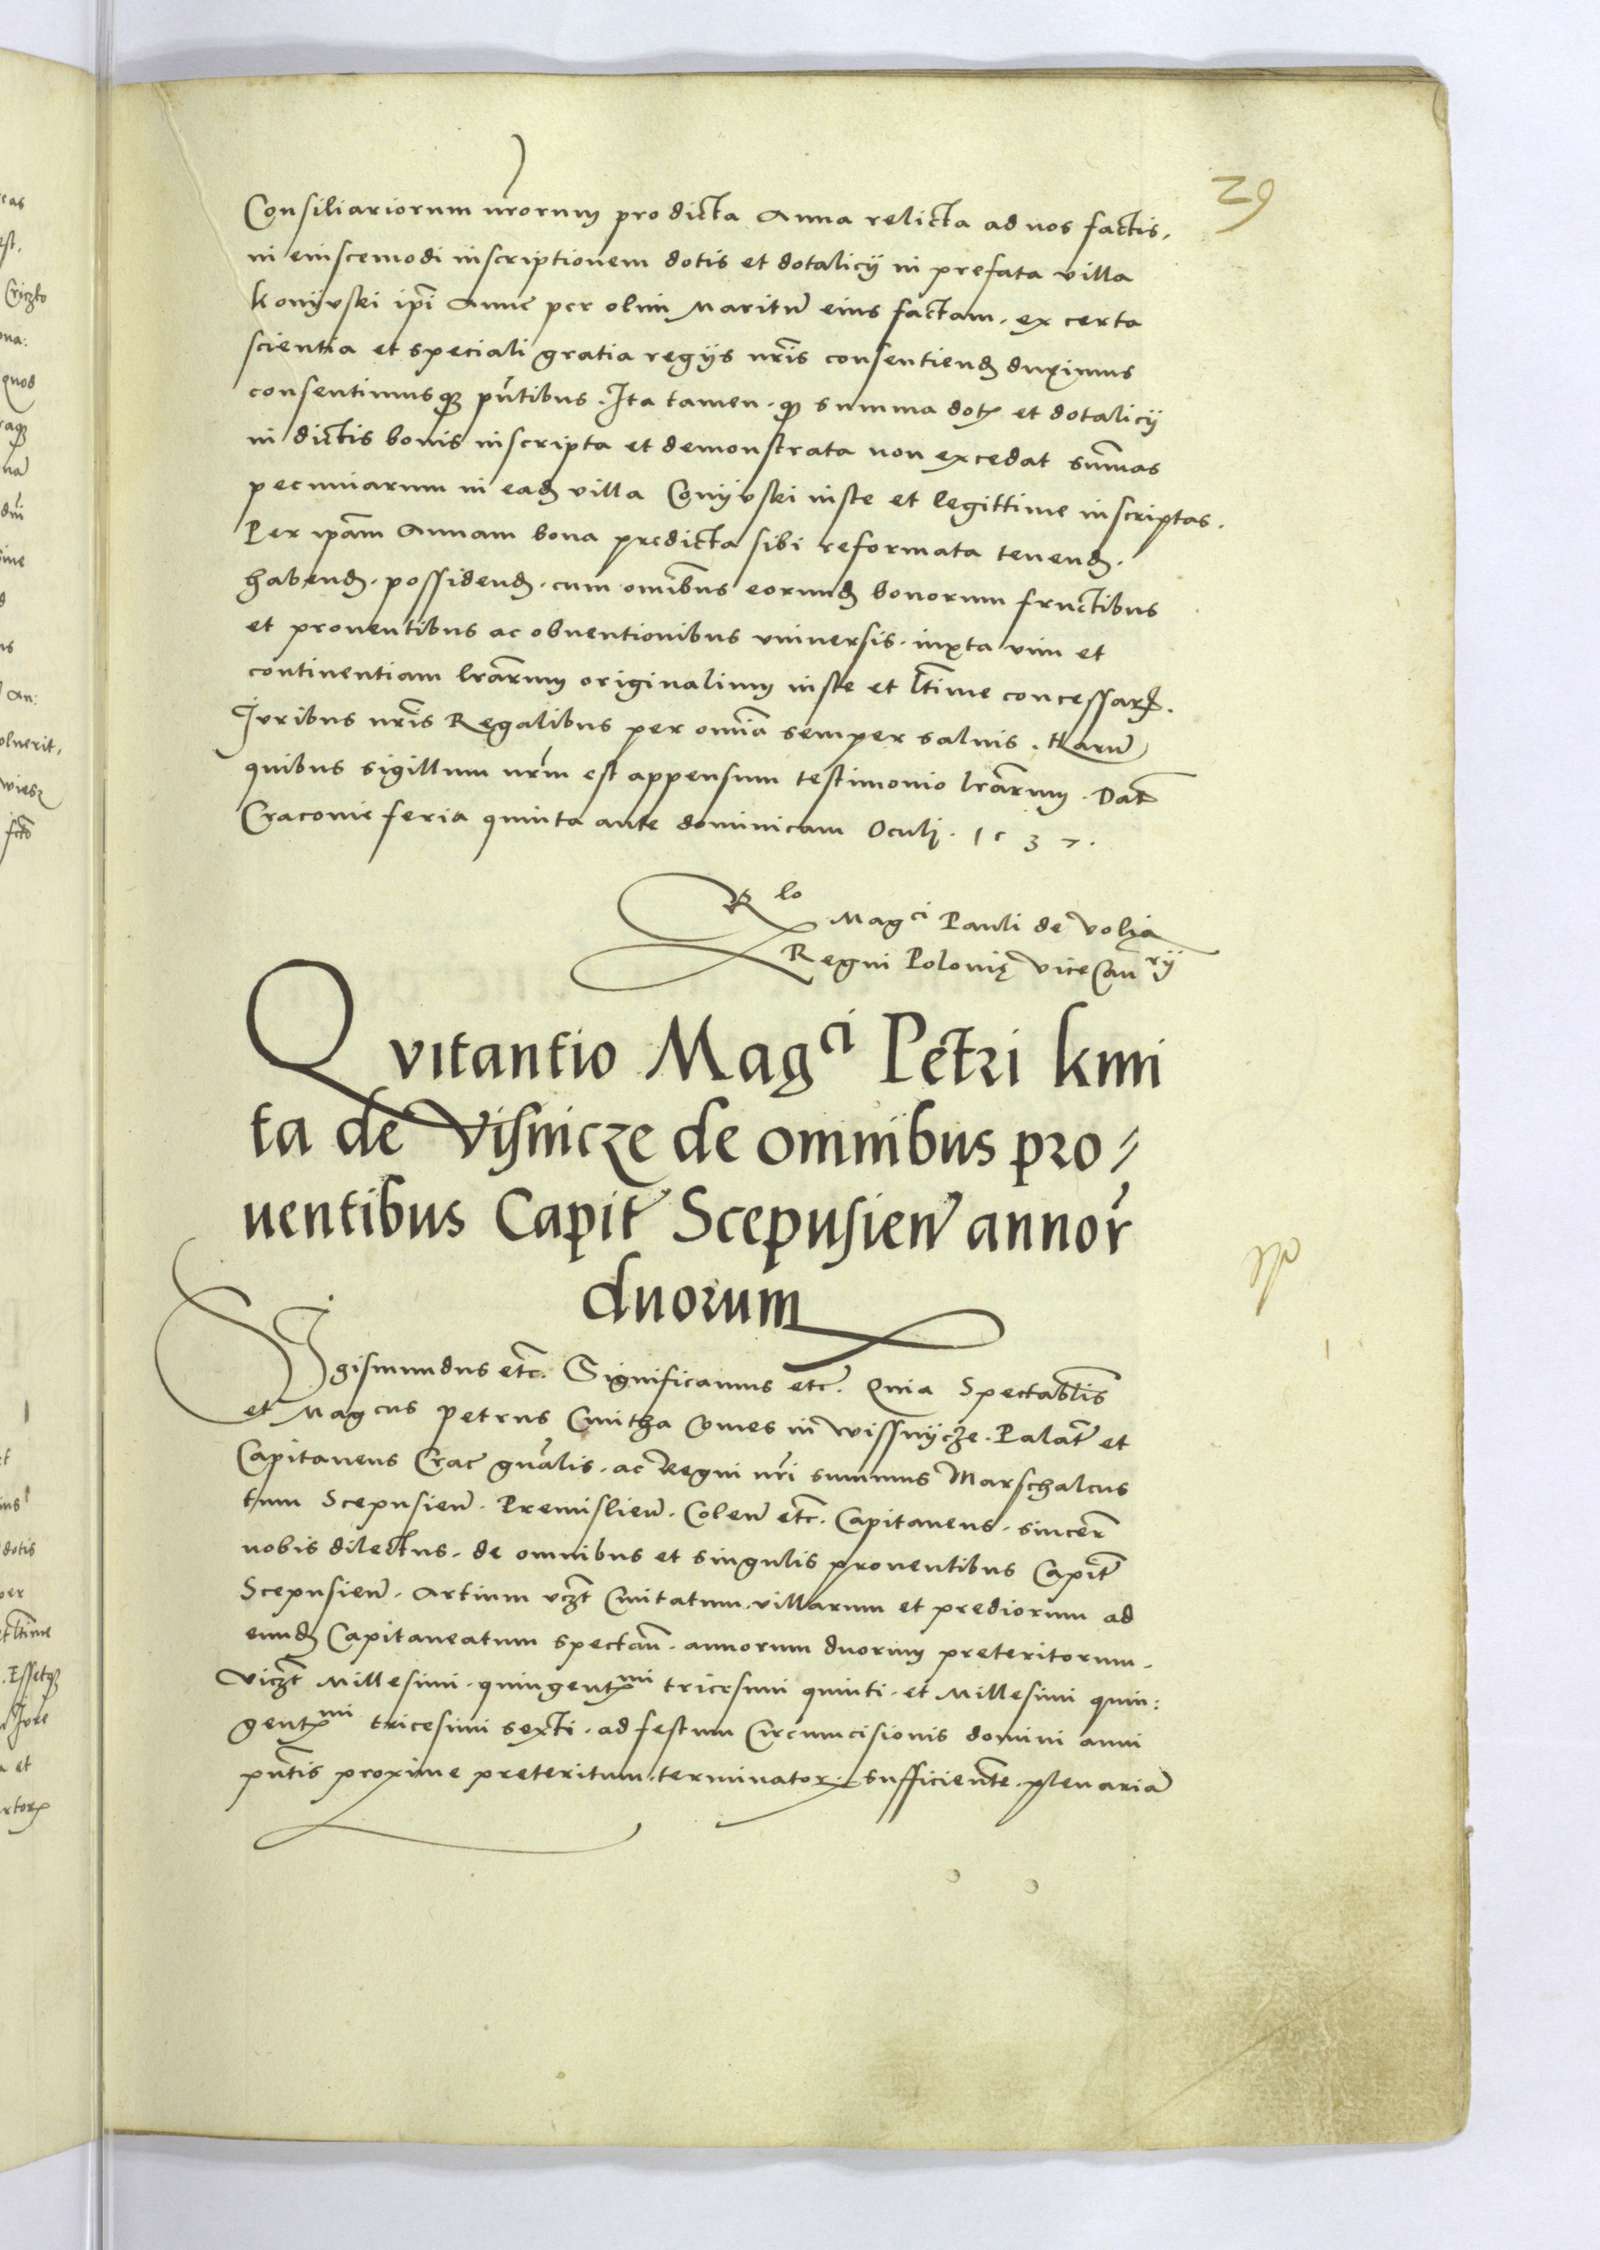 29
Consiliariorum nrorum pro dicta Anna relicta ad nos factis,
in eiuscemodi inscriptionem dotis et dotalicij in prefata villa
Konijvski ipi Anne per olim Maritu eius factam, ex certa
scientia et speciali gratia regijs nris consentiend duximus
consentimusq pntibus. Ita tamen, q summa dot et dotalicij
in dictis bonis inscripta et demonstrata non excedat sumas
pecuniarum in ead villa Conijvski iuste et legittime inscriptas.
Per ipam Annam bona predicta sibi reformata tenend.
habend. possidend. cum omibus eorund bonorum fructibus
et prouentibus ac obuentionibus vniuersis. iuxta vim et
continentiam lrarum originalium iuste et ltime concessar.
Juribus nris Regalibus per omia semper saluis. Haru
quibus sigillum nrm est appensum testimonio lrarum. Dat
Cracouie feria quinta ante dominicam Oculj. 1537.
Rlo
Magci Pauli de Volia
Regni Polonię ViceCanrij
Qvitantio Magci Petri kmi
ta de Visnicze de omnibus pro
uentibus Capit Scepusien annor
duorum
Sigismundus etc. Significamus etc. Quia Spectablis
et Magcus Petrus Cmitha Comes in Wissnijcze. Palat et
Capitaneus Crac gnralis. ac Regni nri summus Marschalcus
tum Scepusien. Premislien. Colen etc. Capitaneus. sincer
nobis dilectus. de omnibus et singulis prouentibus Capit
Scepusien. Artium vczt Ciuitatum. villarum et prediorum ad
eund Capitaneatum spectan. annorum duorum preteritorum.
Viczt Millesimi. quingentmi tricesimi quinti. et Millesimi quin:
gentmi tricesimi sexti. ad festum Circumcisionis domini anni
pntis proxime preteritum. terminator. sufficiente. plenaria